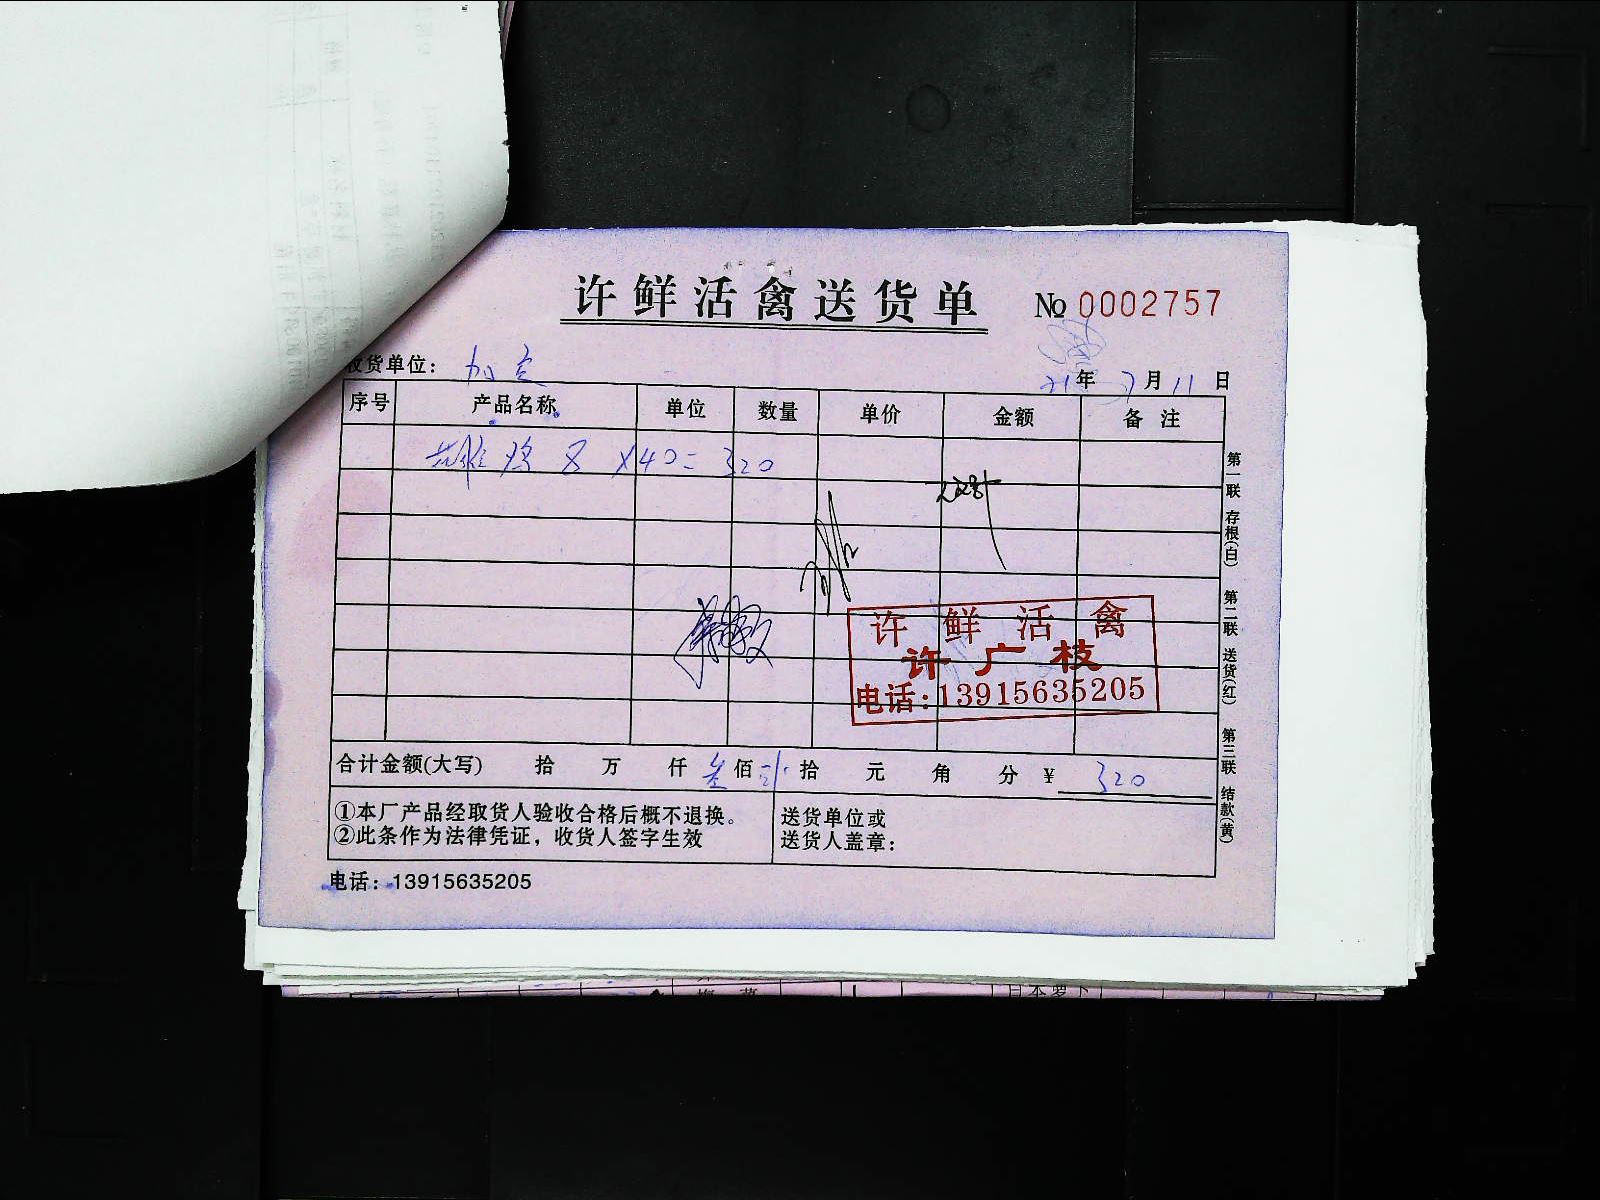 许鲜活禽送货单 № 0002757
收货单位：
21年 7月 11日
序号 产品名称 单位 数量 单价 金额 备注
雄鸡 8 ×40= 320
许鲜活禽
许广枝
电话:13915635205
合计金额(大写) 拾 万 仟 叁佰 贰拾 元 角 分 ¥ 320
①本厂产品经取货人验收合格后概不退换。
②此条作为法律凭证，收货人签字生效
送货单位或
送货人盖章：
电话：13915635205
第一联 存根(白) 第二联 送货(红) 第三联 结款(黄)